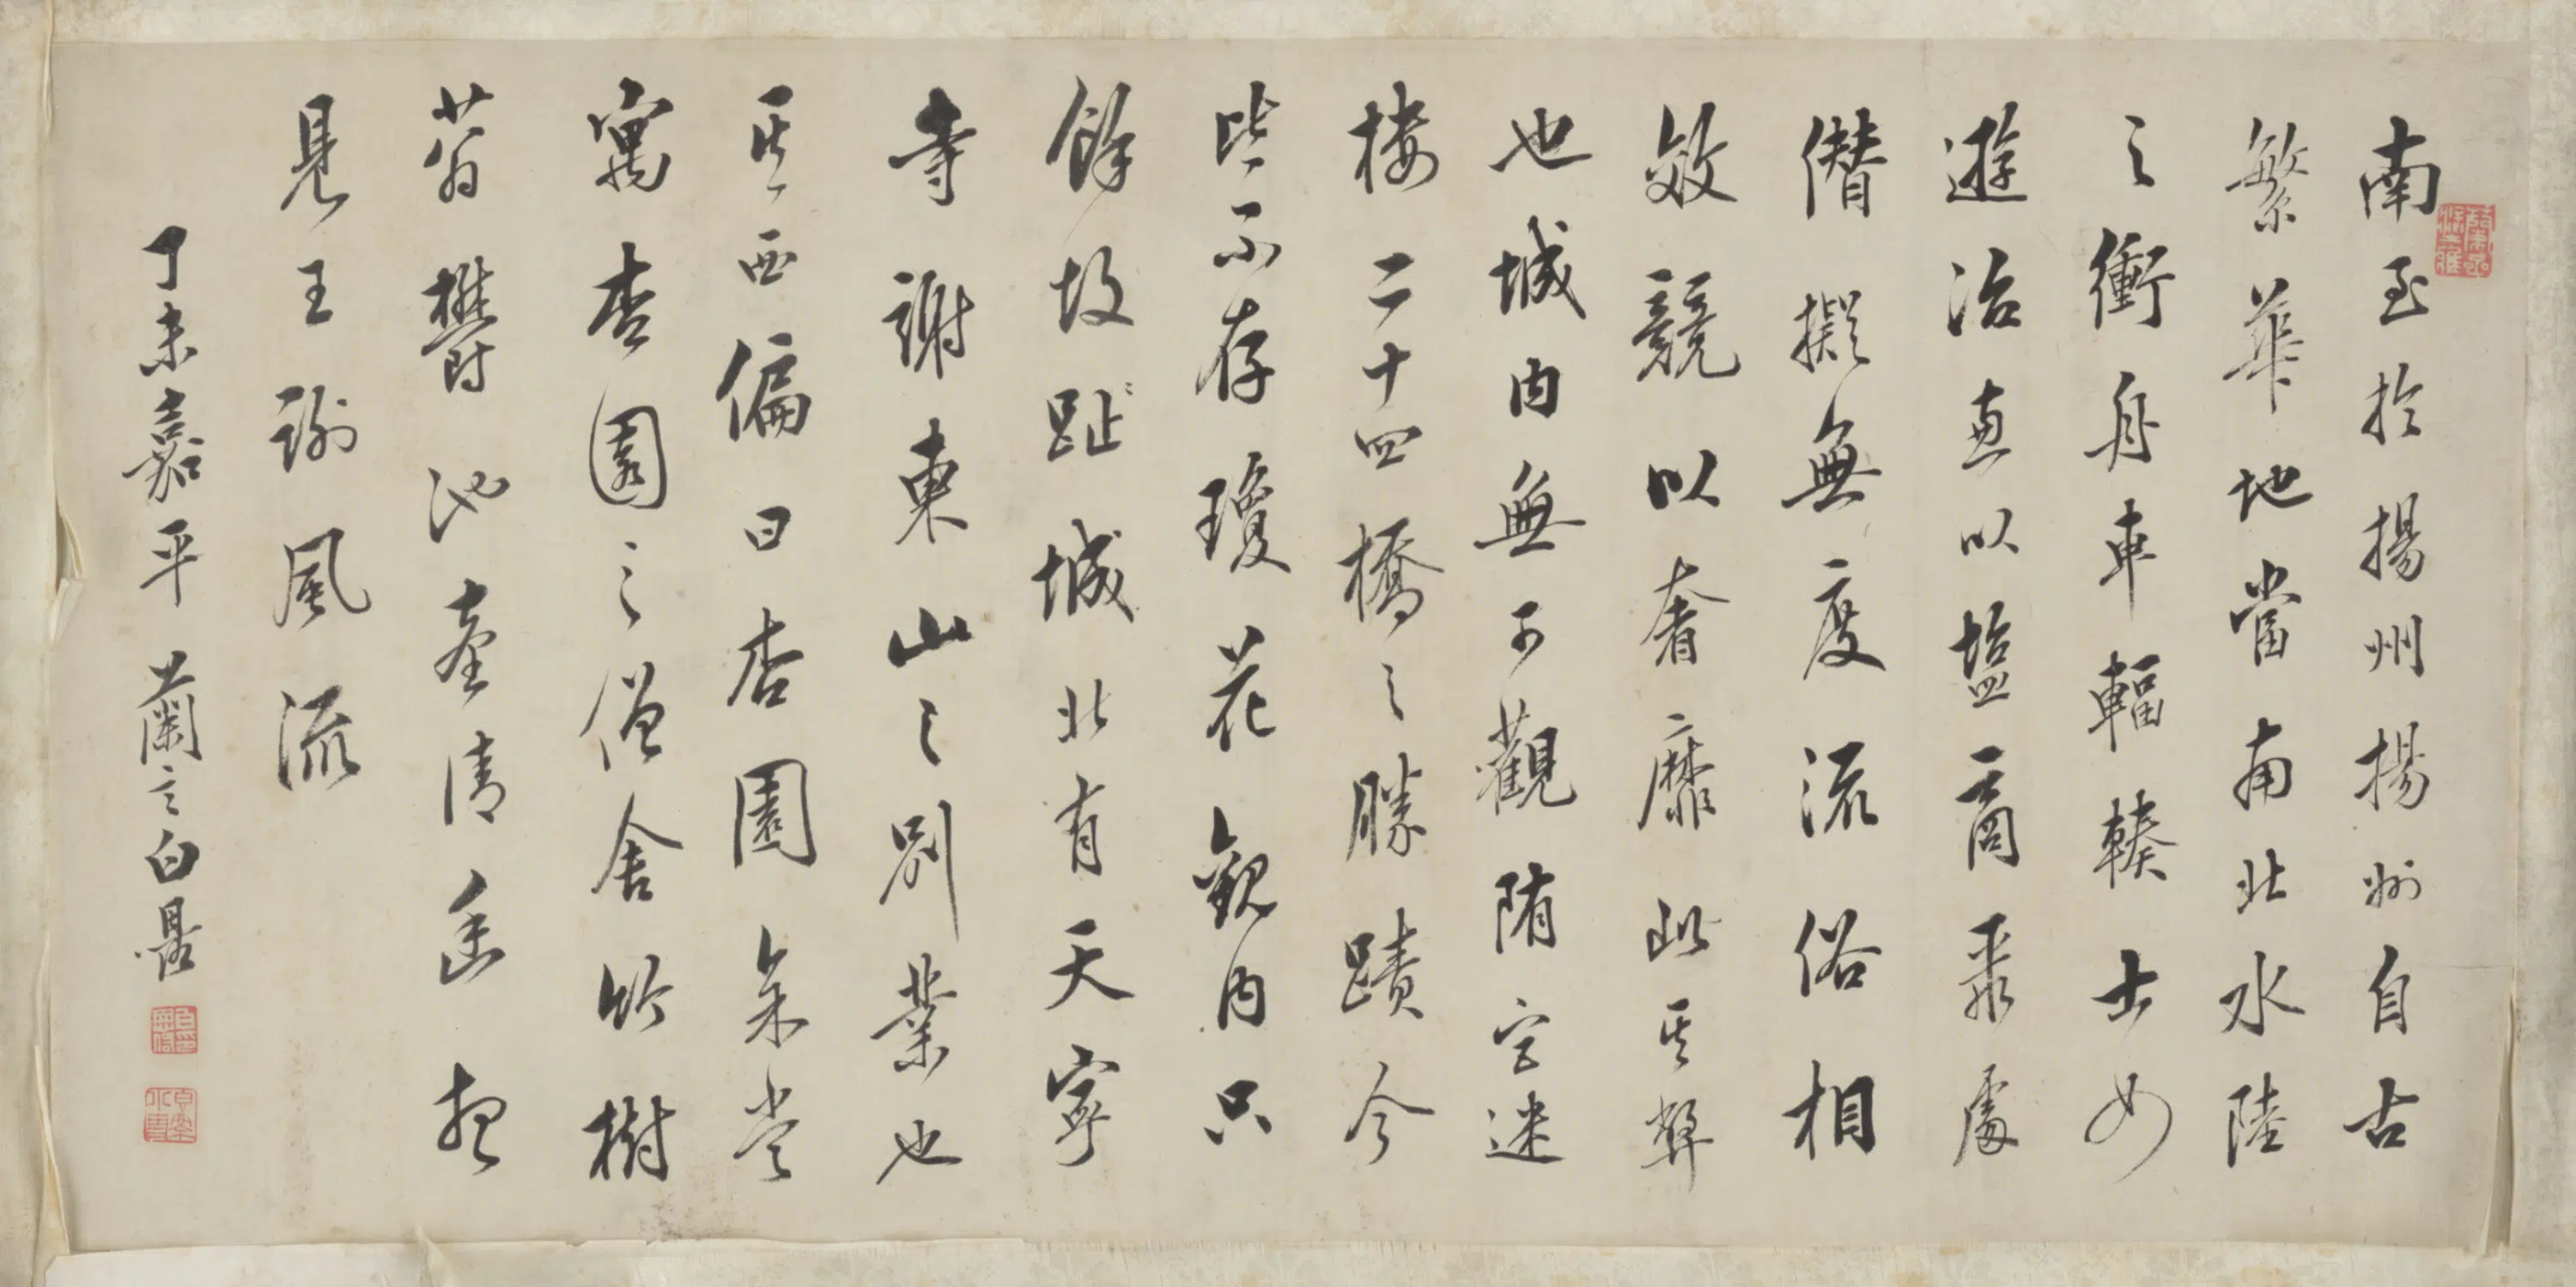 南至於揚州揚州自古
繁華地當南北水陸
之衝舟車輻輳士女
遊冶直以塩商聚處
僭擬無度流俗相
效競以奢靡此其弊
也城内無可觀隋宮迷
樓二十四橋之勝蹟今
皆不存瓊花觀内只
餘故趾城北有天寧
寺謝東山之別業也
其西偏曰杏園余嘗
寓杏園之僧舍竹樹
蓊欝池臺清幽想
見王謝風流
丁未嘉平 蘭言白